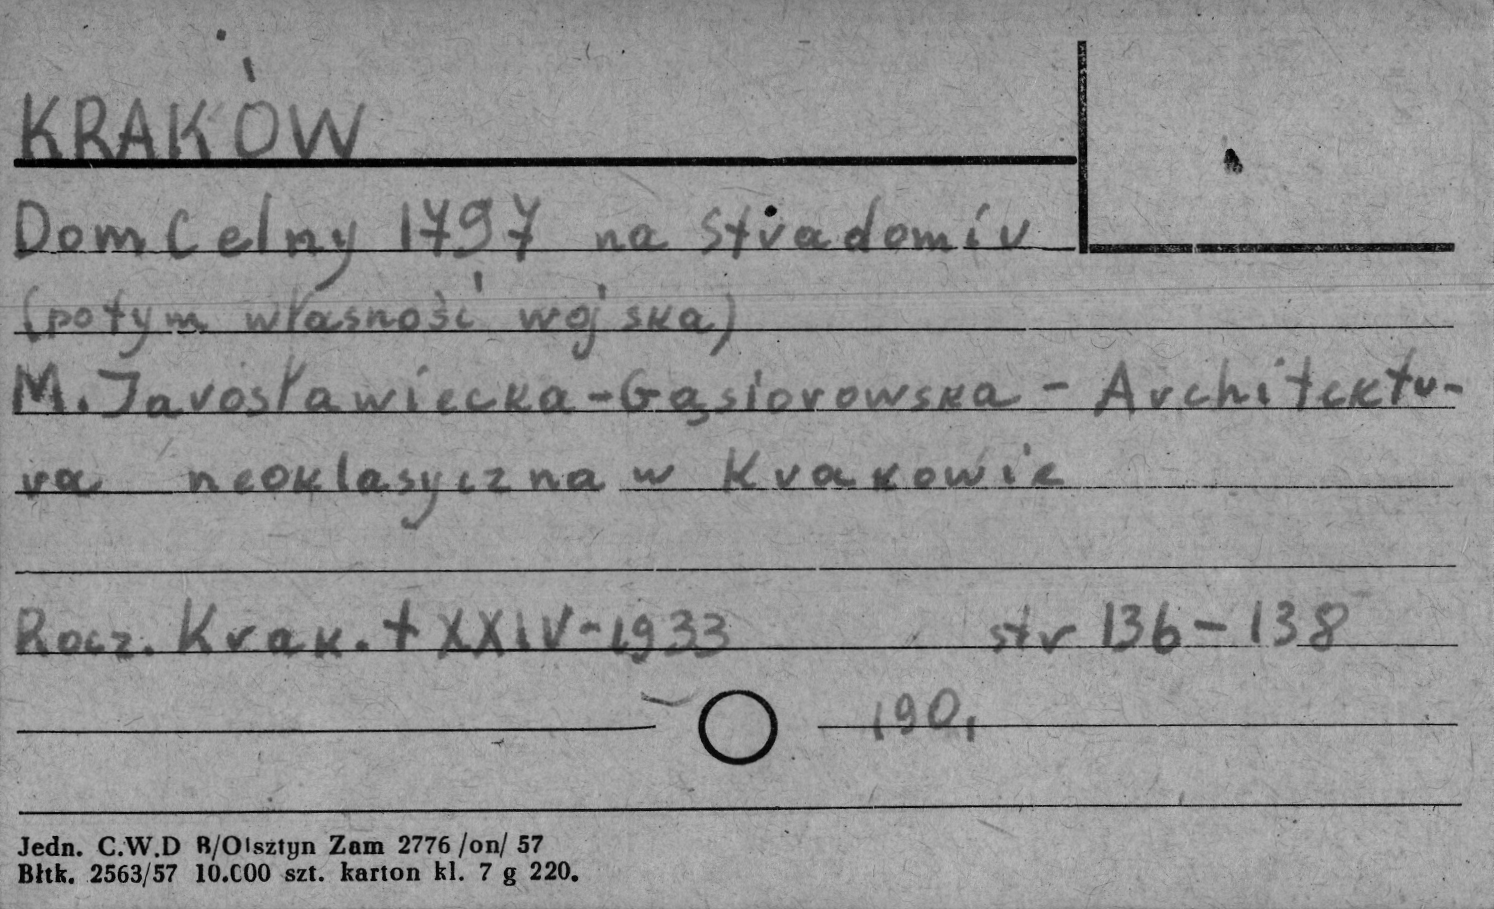 KRAKÓW
Dom Celny 1797 na Stradomiu
(potym własność wojska)
M. Jarosławiecka-Gąsiorowska - Architektu-
ra neoklasyczna w Krakowie
Rocz. Krak. t XXIV-1933 str 136-138
190,
Jedn. C.W.D R/Olsztyn Zam 2776/on/ 57
Błtk. 2563/57 10.000 szt. karton kl. 7 g 220.